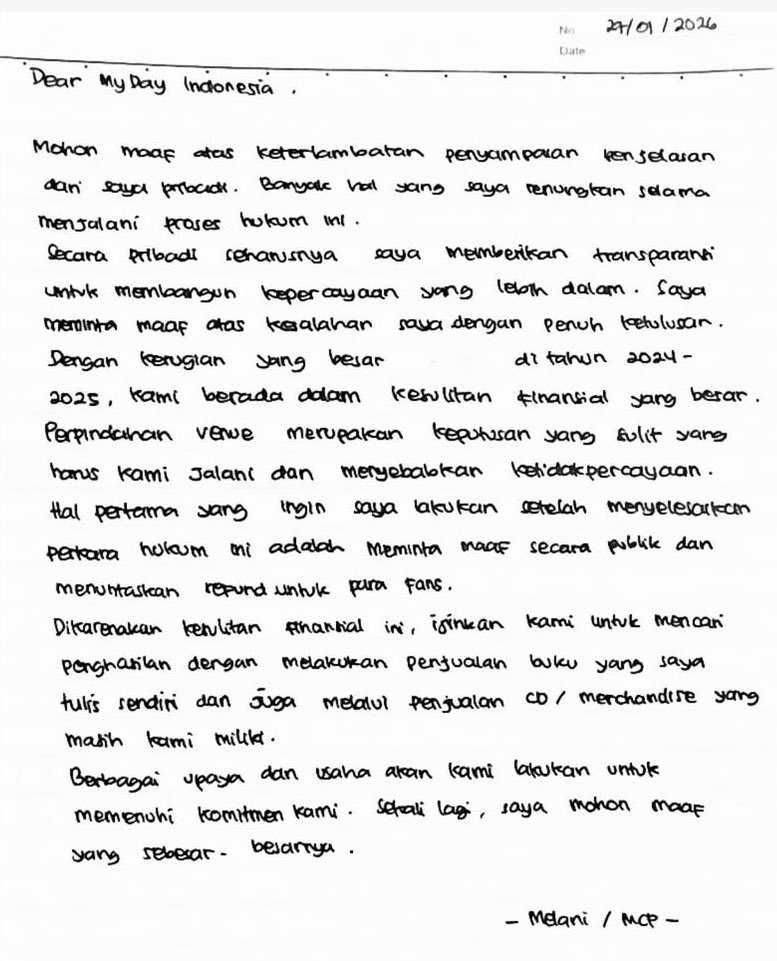 No 27/01/2026
Date
Dear MyDay Indonesia.
Mohon maaf atas keterlambatan penyampaian penjelasan
dari saya pribadi. Banyak hal yang saya renungkan selama
menjalani proses hukum ini.
Secara pribadi seharusnya saya memberikan transparansi
untuk membangun kepercayaan yang lebih dalam. Saya
meminta maaf atas kesalahan saya dengan penuh ketulusan.
Dengan kerugian yang besar di tahun 2024-
2025, kami berada dalam kesulitan finansial yang besar.
Perpindahan venue merupakan keputusan yang sulit yang
harus kami jalani dan menyebabkan ketidakpercayaan.
Hal pertama yang ingin saya lakukan setelah menyelesaikan
perkara hukum ini adalah meminta maaf secara publik dan
menuntaskan refund untuk para fans.
Dikarenakan kesulitan finansial ini, izinkan kami untuk mencari
penghasilan dengan melakukan penjualan buku yang saya
tulis sendiri dan juga melalui penjualan CD / merchandise yang
masih kami miliki.
Berbagai upaya dan usaha akan kami lakukan untuk
memenuhi komitmen kami. Sekali lagi, saya mohon maaf
yang sebesar-besarnya.
- Melani / MCP -